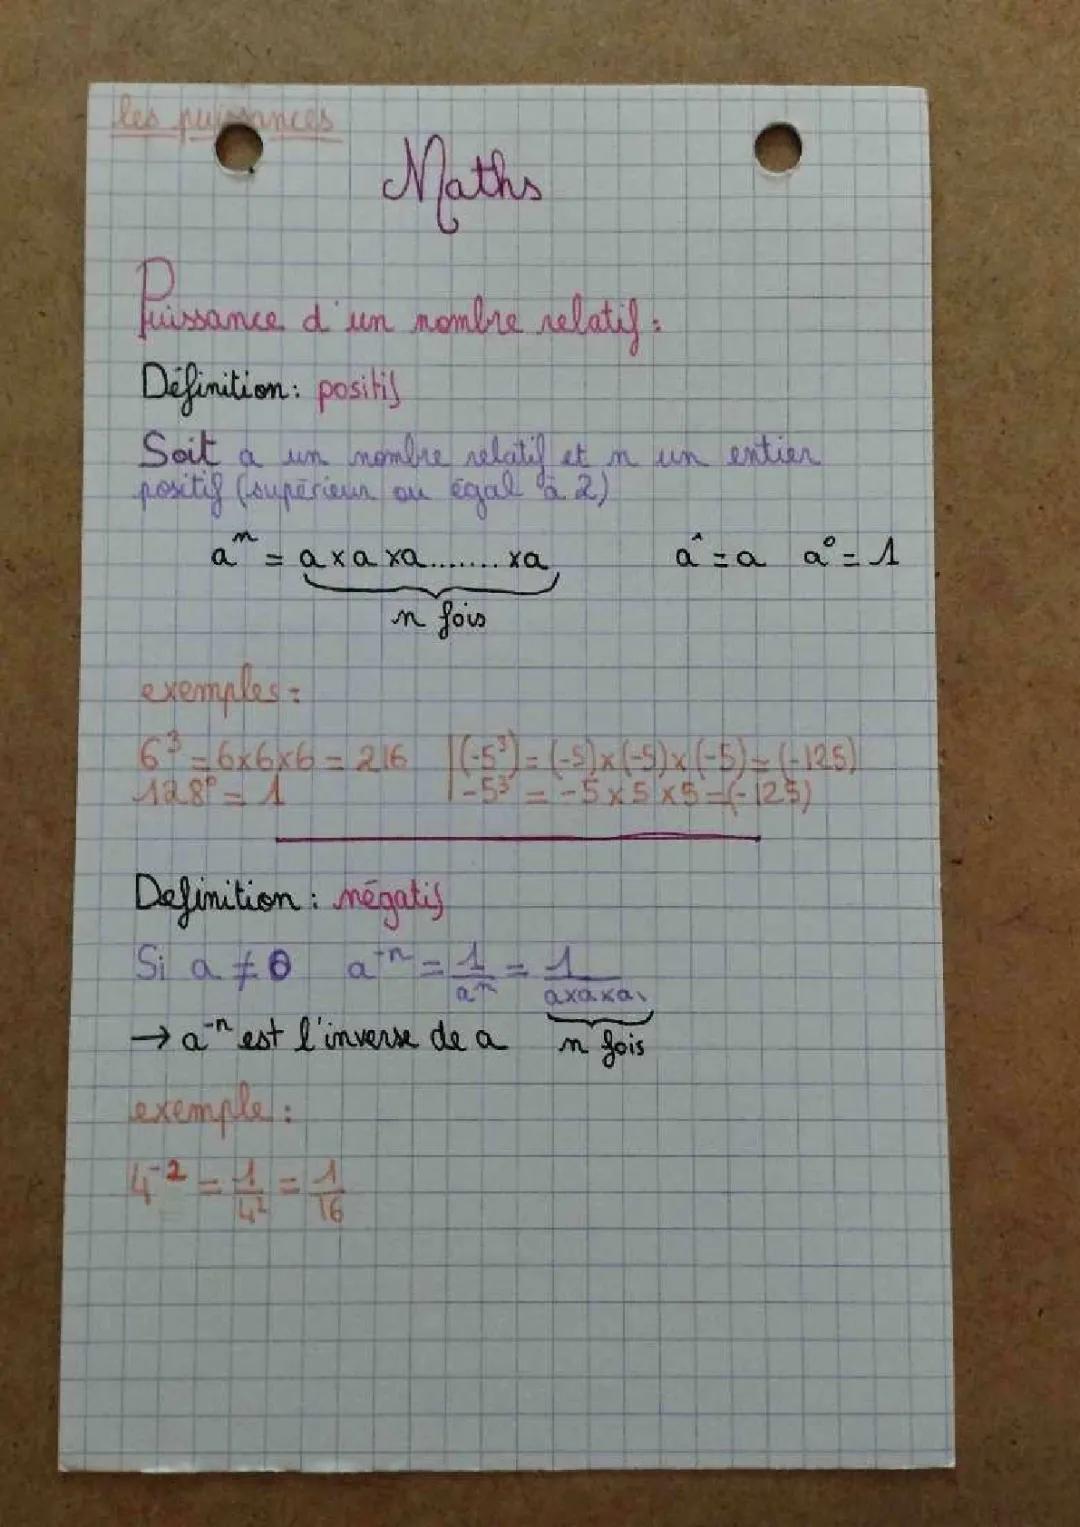 les puissances
Maths
Puissance d'un nombre relatif :
Définition : positif
Soit a un nombre relatif et n un entier
positif (supérieur ou égal à 2)
aⁿ = a x a x a ....... x a a¹ = a a⁰ = 1
n fois
exemples :
6³ = 6x6x6 = 216 |(-5³) = (-5)x(-5)x(-5) = (-125)
128⁰ = 1 |-5³ = -5 x 5 x 5 = (-125)
Definition : négatif
Si a ≠ 0 a⁻ⁿ = 1/aⁿ = 1/axaxa
→ a⁻ⁿ est l'inverse de a n fois
exemple :
4⁻² = 1/4² = 1/16